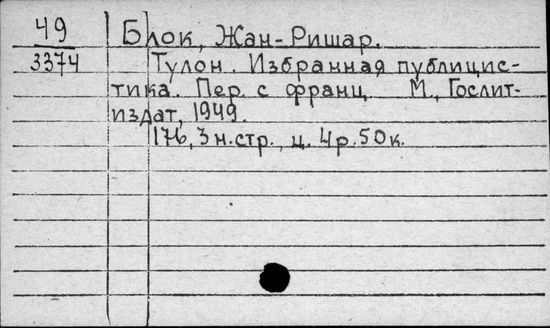 49
3374
Блок, Жан-Ришар.
Тулон. Избранная публицис-
тика. Пер. с франц. М., Гослит-
издат, 1949.
176, 3 н.стр., ц. 4р.50к.